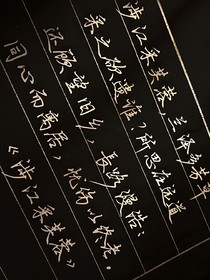 涉江采芙蓉，兰泽多芳草
采之欲遗谁？所思在远道
还顾望旧乡，长路漫浩浩
同心而离居，忧伤以终老。
《涉江采芙蓉》